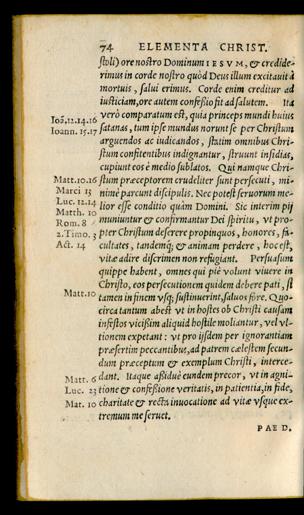 74 ELEMENTA CHRIST.
stoli) ore nostro Dominum IESVM, & credide-
rimus in corde nostro quòd Deus illum excitauit à
mortuis, salui erimus. Corde enim creditur ad
iusticiam, ore autem confessio fit ad salutem. Ita
Ioā. 12.14.16 verò comparatum est, quia princeps mundi huius
Ioann. 15.17 satanas, tum ipse mundus norunt se per Christum
arguendos ac iudicandos, statim omnibus Chri-
stum confitentibus indignantur, struunt insidias,
cupiunt eos è medio sublatos. Qui namque Chri-
Matt. 10.16 stum præceptorem crudeliter sunt persecuti, mi-
Marci 13 nimè parcunt discipulis. Nec potest seruorum me-
Luc. 12.14 lior esse conditio quàm Domini. Sic interim pij
Matth. 10 muniuntur & confirmantur Dei spiritu, vt pro-
Rom. 8 pter Christum deserere propinquos, honores, fa-
2. Timo. 3 cultates, tandemq; & animam perdere, hoc est,
Act. 14 vitæ adire discrimen non refugiant. Persuasum
quippe habent, omnes qui piè volunt viuere in
Christo, eos persecutionem quidem debere pati, si
Matt. 10 tamen in finem vsq; sustinuerint, saluos fore. Quo-
circa tantum abest vt in hostes ob Christi causam
infestos vicissim aliquid hostile moliantur, vel vl-
tionem expetant: vt pro ijsdem per ignorantiam
præsertim peccantibus, ad patrem cælestem secun-
dum præceptum & exemplum Christi, interce-
Matt. 6 dant. Itaque assiduè eundem precor, vt in agni-
Luc. 23 tione & confessione veritatis, in patientia, in fide,
Mat. 10 charitate & recta inuocatione ad vitæ vsque ex-
tremum me seruet.
PAED.